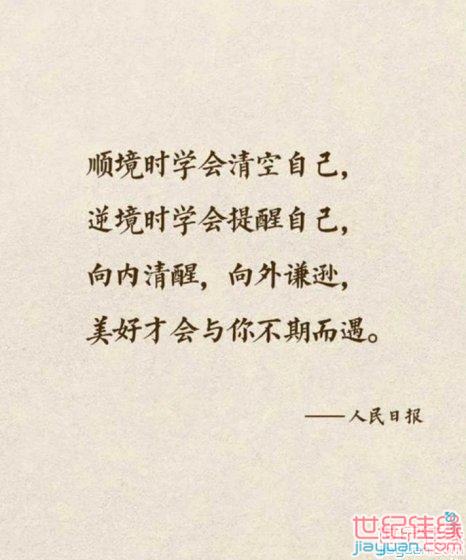 顺境时学会清空自己，
逆境时学会提醒自己，
向内清醒，向外谦逊，
美好才会与你不期而遇。
——人民日报
世纪佳缘
jiayuan.com